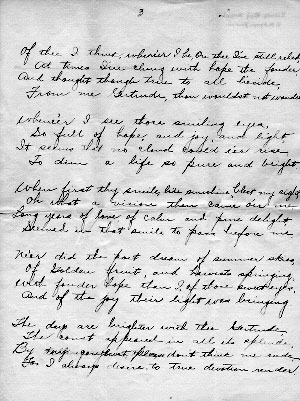 3
Of thee I think, where'er I be, On thee I've still relied
At times I've clung with hope the fonder,
And thought though true to all beside,
From me Gertrude, thou wouldst not wander
Whene'er I see those smiling eyes,
So full of hope, and joy and light
It seems no cloud could ere rise
To dim a life so pure and bright
When first thy smile, like sunshine blest my sight
Oh what a vision then came o'er me
Long years of love of calm and pure delight
Seemed in that smile to pass before me
Ne'er did the poet dream of summer skies
Of Golden fruit, and harvests springing
With fonder hope than I of those sweet eyes,
And of the joy their light was bringing
The days are brighter with thee Gertrude
The appeared in all its splendor
By don't think me rude
For I always desire to true devotion render